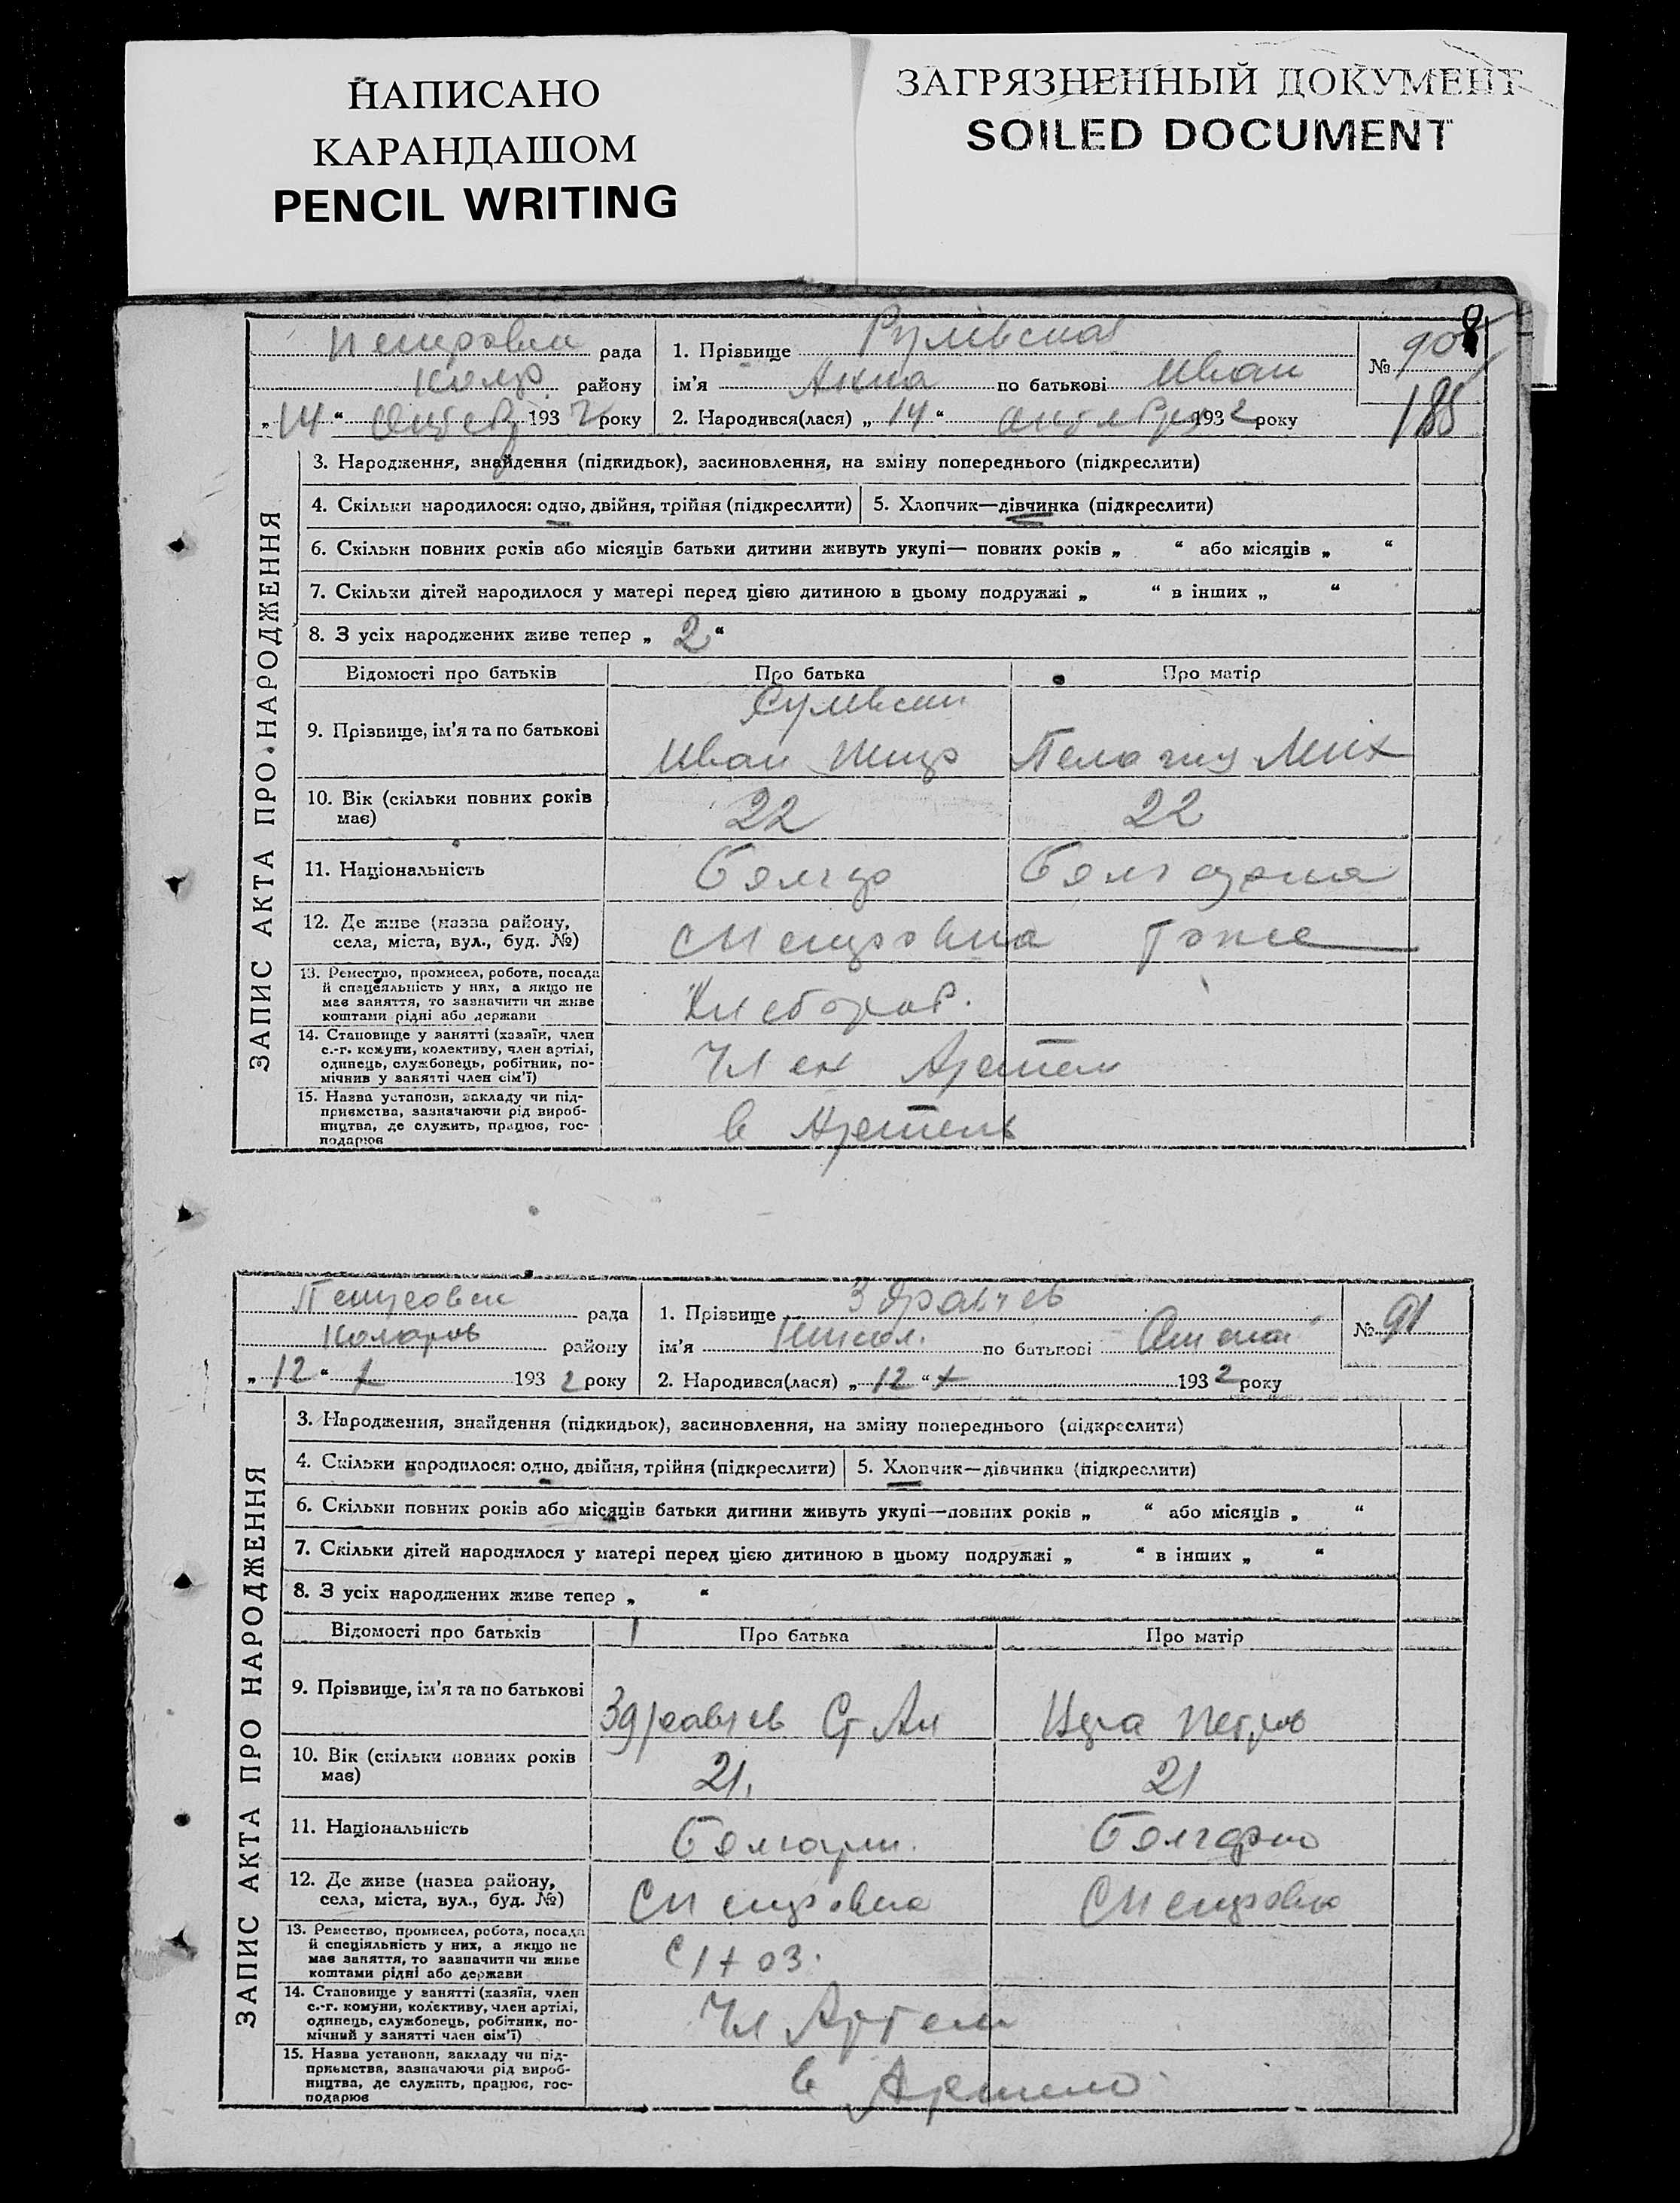 НАПИСАНО
КАРАНДАШОМ
PENCIL WRITING
ЗАГРЯЗНЕННЫЙ ДОКУМЕНТ
SOILED DOCUMENT
рада
району
„14“ 193 2 року
1. Прізвище
ім'я Анна по батькові Иван
2. Народився(лася) „14“ октября 193 2 року
№ 90
185
ЗАПИС АКТА ПРО НАРОДЖЕННЯ
3. Народження, знайдення (підкидьок), засиновлення, на зміну попереднього (підкреслити)
4. Скільки народилося: одно, двійня, трійня (підкреслити)
5. Хлопчик—дівчинка (підкреслити)
6. Скільки повних років або місяців батьки дитини живуть укупі— повних років „ “ або місяців „ “
7. Скільки дітей народилося у матері перед цією дитиною в цьому подружжі „ “ в інших „ “
8. З усіх народжених живе тепер „ 2 “
Відомості про батьків
Про батька
Про матір
9. Прізвище, ім'я та по батькові
Иван
Мих
10. Вік (скільки повних років
має)
22
22
11. Національність
Болгар
Болгарка
12. Де живе (назва району,
села, міста, вул., буд. №)
с Петровка
тоже
13. Ремество, промисел, робота, посада
й спеціяльність у них, а якщо не
має заняття, то зазначити чи живе
коштами рідні або держави
Хлебороб.
14. Становище у занятті (хазяїн, член
с.-г. комуни, колективу, член артілі,
одинець, службовець, робітник, по-
мічник у занятті член сім'ї)
Член Артели
15. Назва установи, закладу чи під-
приємства, зазначаючи рід вироб-
ництва, де служить, працює, гос-
подарює
в Артель
рада
Коларов району
„12“ X 193 2 року
1. Прізвище Здравчев
ім'я Никол. по батькові
2. Народився(лася) „12“ X 193 2 року
№ 91
ЗАПИС АКТА ПРО НАРОДЖЕННЯ
3. Народження, знайдення (підкидьок), засиновлення, на зміну попереднього (підкреслити)
4. Скільки народилося: одно, двійня, трійня (підкреслити)
5. Хлопчик—дівчинка (підкреслити)
6. Скільки повних років або місяців батьки дитини живуть укупі—повних років „ “ або місяців „ “
7. Скільки дітей народилося у матері перед цією дитиною в цьому подружжі „ “ в інших „ “
8. З усіх народжених живе тепер „ “
Відомості про батьків
1 Про батька
Про матір
9. Прізвище, ім'я та по батькові
Здравчев Ст Ан
Петров
10. Вік (скільки повних років
має)
21.
21
11. Національність
Болгарин.
Болгарка
12. Де живе (назва району,
села, міста, вул., буд. №)
с Петровка
с Петровка
13. Ремество, промисел, робота, посада
й спеціяльність у них, а якщо не
має заняття, то зазначити чи живе
коштами рідні або держави
14. Становище у занятті (хазяїн, член
с.-г. комуни, колективу, член артілі,
одинець, службовець, робітник, по-
мічний у занятті член сім'ї)
Чл Артели
15. Назва установи, закладу чи під-
приємства, зазначаючи рід вироб-
ництва, де служить, працює, гос-
подарює
в